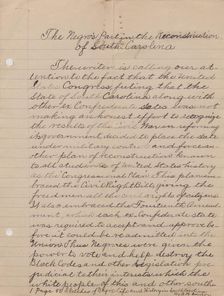 The Negro's Part in the Reconstruction
of South Carolina
The writer is calling our at-
tention to the fact that the United
States Congress, feeling that the
State of South Carolina along with
other ex Confederate States was not
making an honest effort to recognize
the results of the Civil War in reforming
its government decided to place the state
under military control and force an
other plan of Reconstruction known
to all students of the Red States History
as the Congressional Plan. This plan em-
braced the Civil Rights Bill, giving the
freedmen all the civil rights of citizens.
It also embraced the Fourteenth Amend-
ment, which each ex Confederate state
was required to accept and approve be-
fore it could be readmitted into the
Union. Thus Negroes were given the
power to vote and help destroy the
Black Codes and other legislation pre-
judicial to their interests which the
white people of this and other south